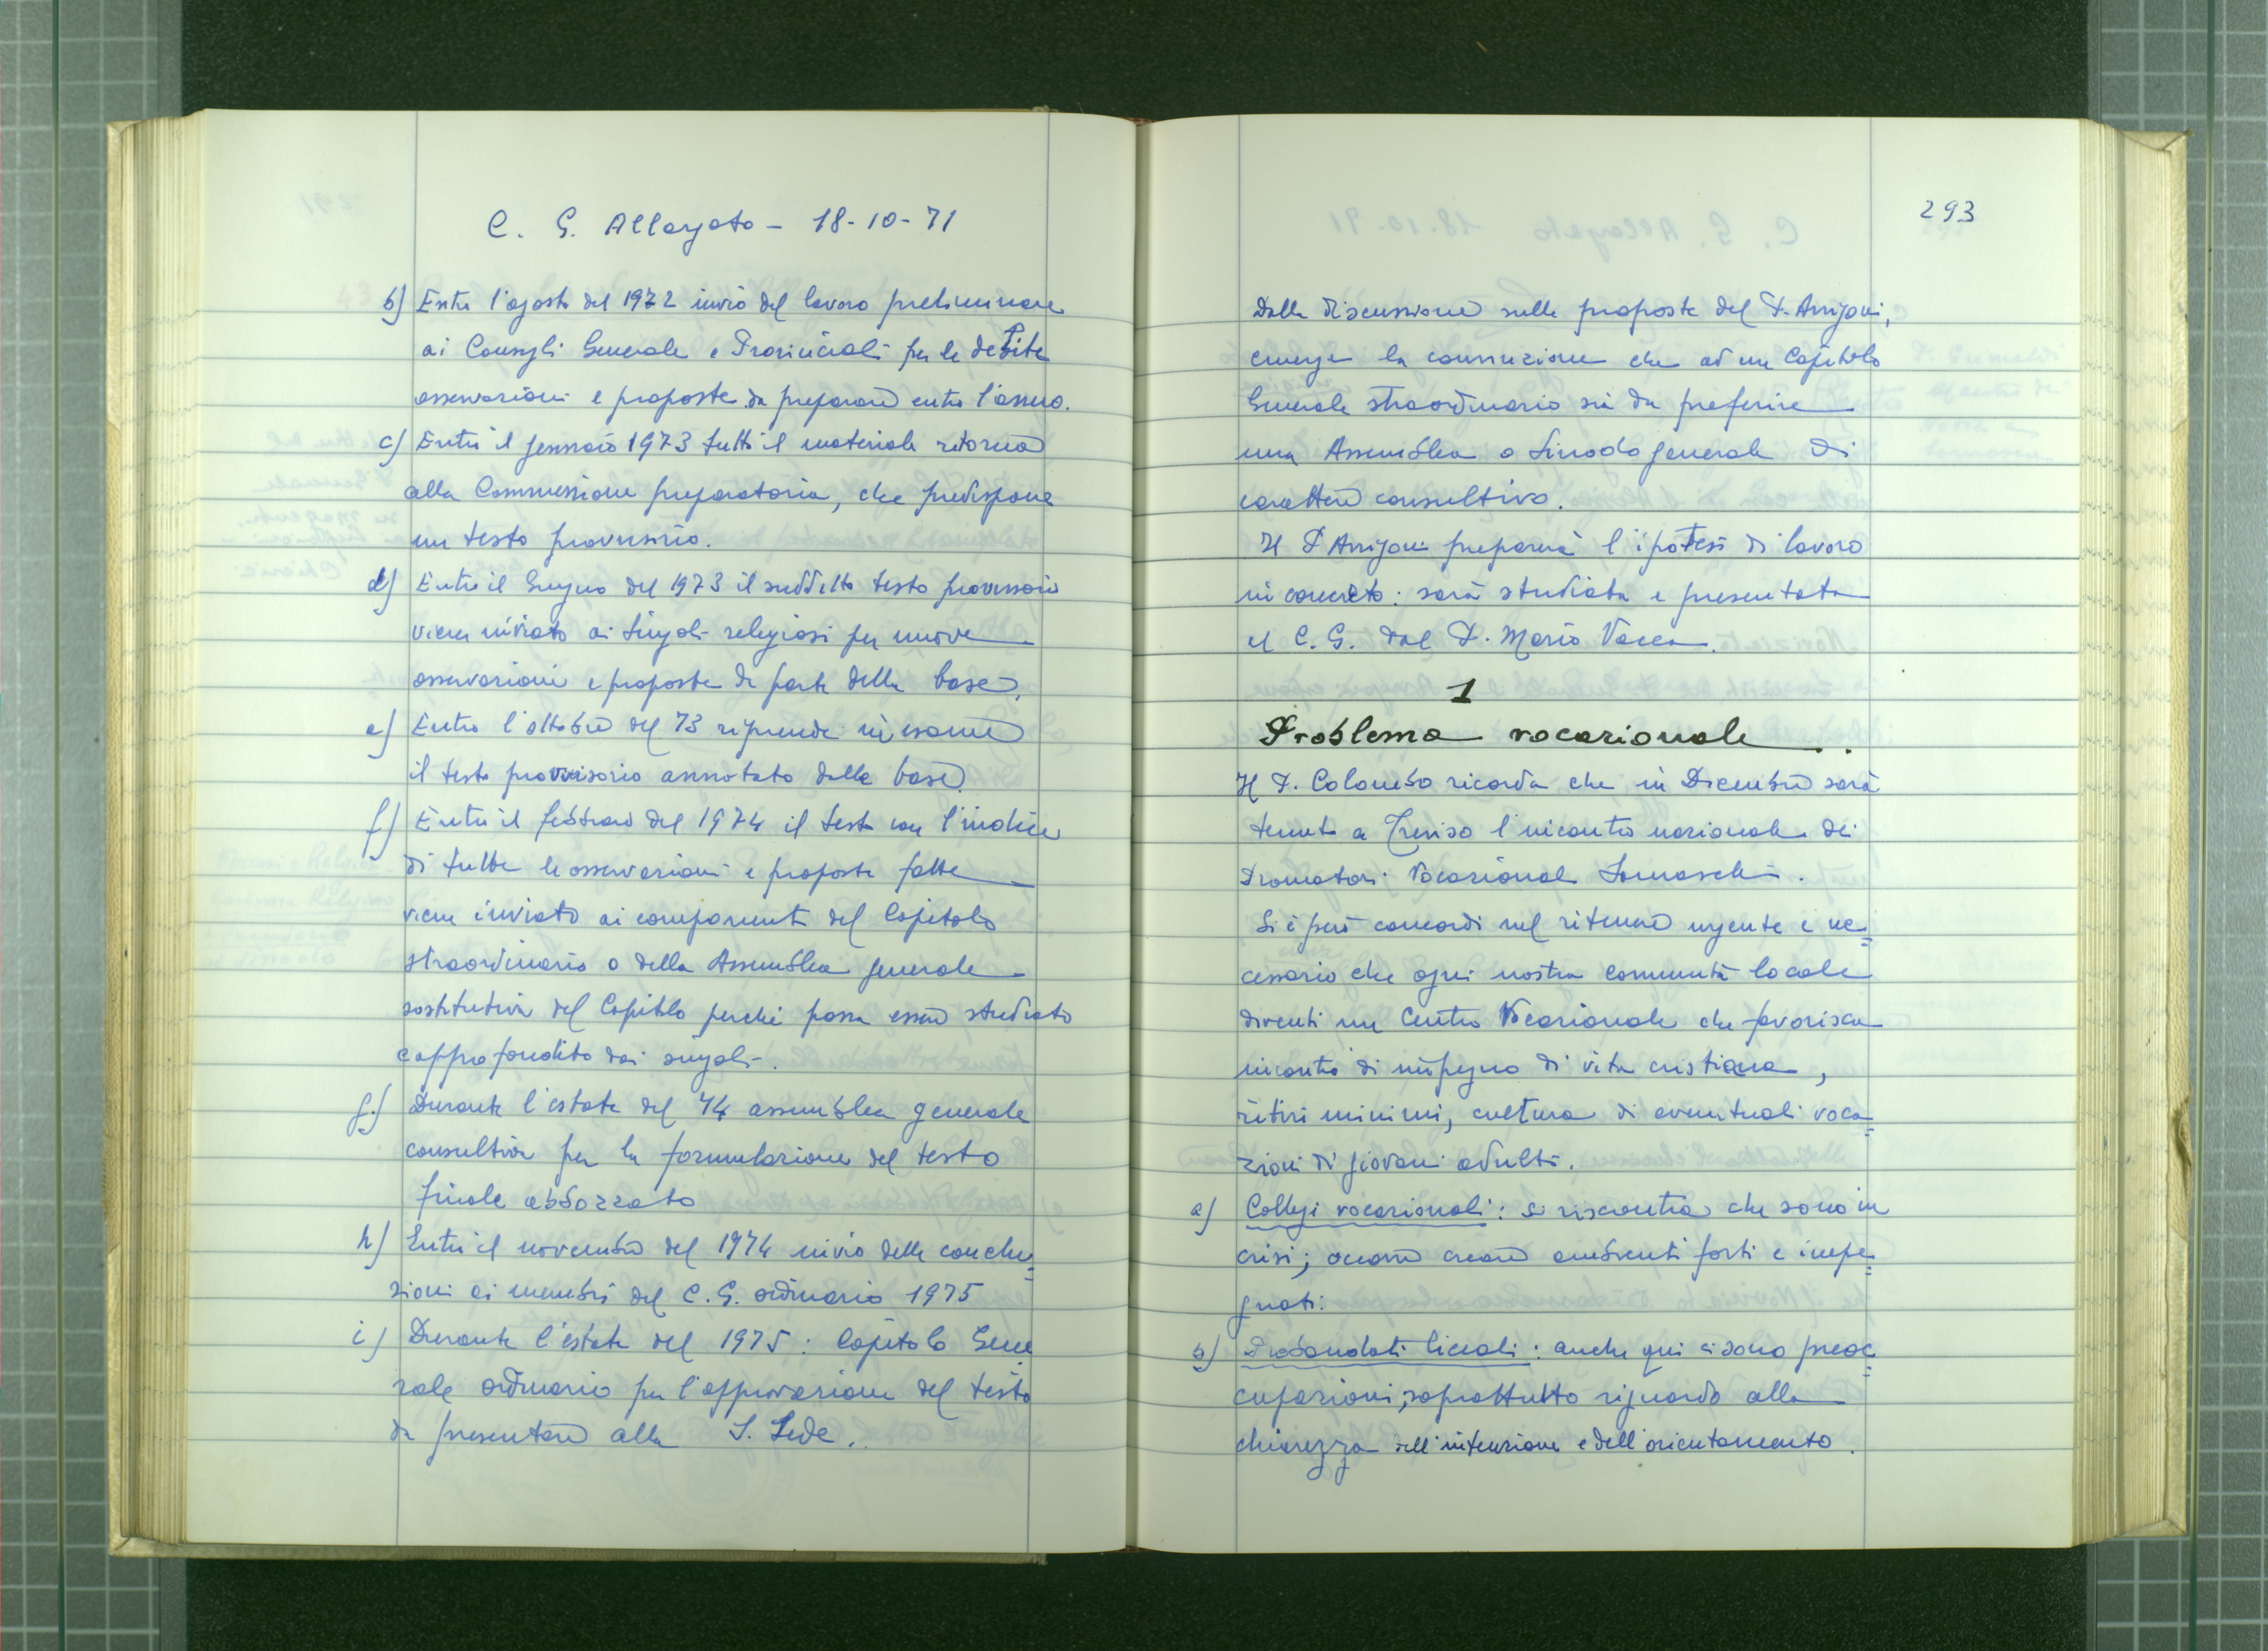 C. G. Allargato - 18-10-71
b) Entro l'agosto del 1972 invio del lavoro preliminare
ai Consigli Generale e Provinciali per le debite
osservazioni e proposte da preparare entro l'anno.
c) Entro il gennaio 1973 tutto il materiale ritorna
alla Commissione preparatoria, che predispone
un testo provvisorio.
d) Entro il Giugno del 1973 il suddetto testo provvisorio
viene inviato ai singoli religiosi per nuove
osservazioni e proposte da parte della base.
e) Entro l'ottobre del 73 riprende in esame
il testo provvisorio annotato dalla base.
f) Entro il febbraio del 1974 il testo con l'indice
di tutte le osservazioni e proposte fatte
viene inviato ai componenti del Capitolo
straordinario o della Assemblea generale
sostitutiva del Capitolo perché possa essere studiato
e approfondito dai singoli.
g) Durante l'estate del 74 assemblea generale
consultiva per la formulazione del testo
finale abbozzato
h) Entro il novembre del 1974 invio delle conclu=
sioni ai membri del C.G. ordinario 1975
i) Durante l'estate del 1975: Capitolo Gene
rale ordinario per l'approvazione del testo
da presentare alla S. Sede.
293
Dalla discussione sulle proposte del P. Arrigoni,
emerge la convinzione che ad un Capitolo
Generale straordinario sia da preferire
una Assemblea o Sinodo generale di
carattere consultivo.
Il P. Arrigoni preparerà l'ipotesi di lavoro
in concreto: sarà studiata e presentata
al C.G. dal P. Mario Vacca.
1
Problema vocazionale..
Il P. Colombo ricorda che in Dicembre sarà
tenuto a Treviso l'incontro nazionale dei
Promotori Vocazionali Somaschi.
Si è però concordi nel ritenere urgente e ne=
cessario che ogni nostra comunità locale
diventi un Centro Vocazionale che favorisca
incontri di impegno di vita cristiana,
ritiri minimi, cultura di eventuali voca=
zioni di giovani adulti.
a) Collegi vocazionali: si riscontra che sono in
crisi; occorre creare ambienti forti e impe=
gnati.
b) Probandati liceali: anche qui ci sono preoc=
cupazioni, soprattutto riguardo alla
chiarezza dell'intenzione e dell'orientamento.